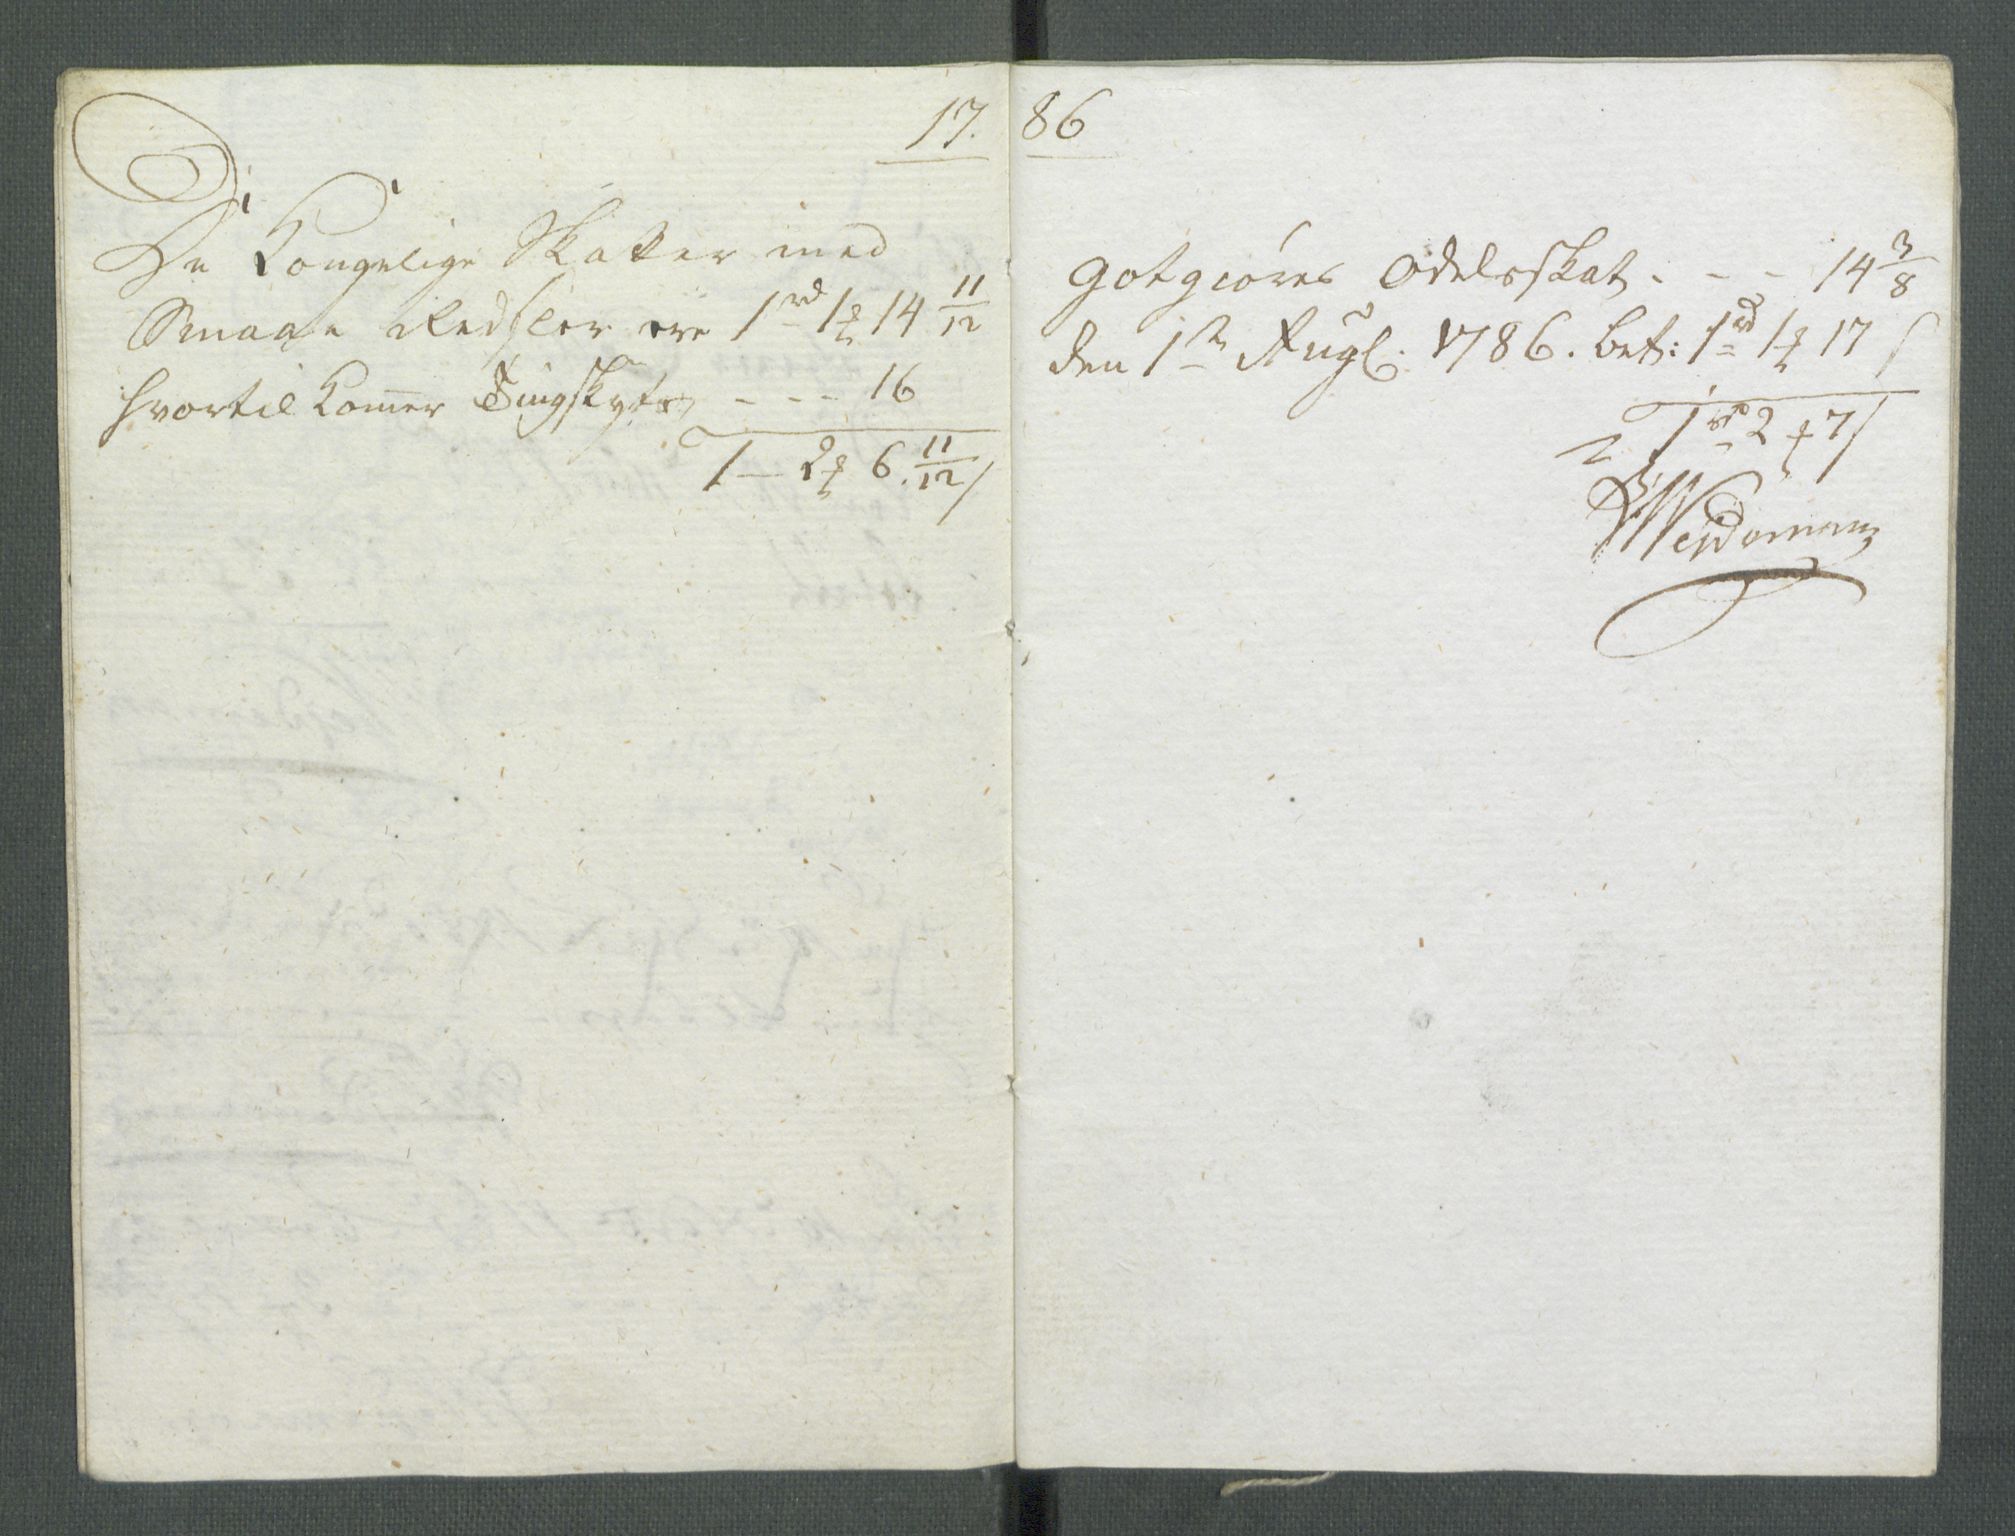 17. 86
De Kongelige Skatter med
Smaae Redsler ere 1 rd 1 ℔ 14 11/12
hvortil Komer Tingskyts - - - 16
1 — 2 ℔ 6. 11/12 /
Gotgiøres Odelsskat. - - 14 3/8
den 1te Augl: 1786. bet: 1 rd 1 ℔ 17 /
1 rd 2 ℔ 7 /
Weydemann